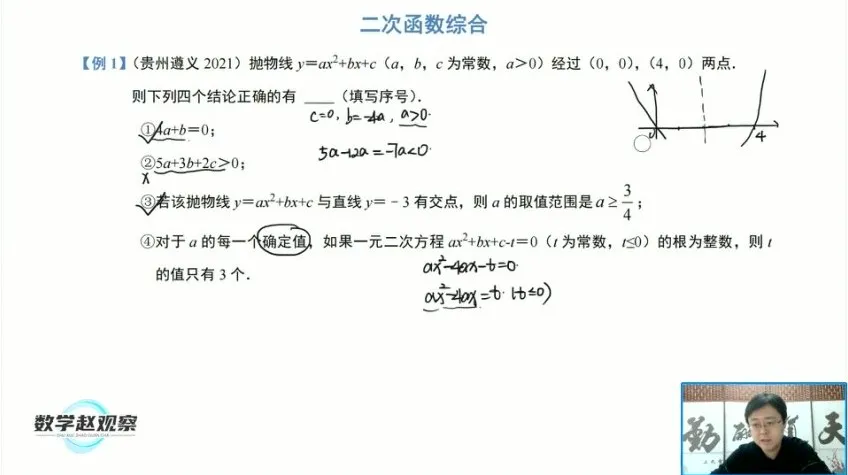 二次函数综合
【例1】（贵州遵义 2021）抛物线 y＝ax²+bx+c（a，b，c 为常数，a＞0）经过（0，0），（4，0）两点．
则下列四个结论正确的有 ____（填写序号）．
c=0, b=-4a, a>0.
①4a+b＝0；
5a-12a=-7a<0.
②5a+3b+2c＞0；
x
③若该抛物线 y＝ax²+bx+c 与直线 y＝﹣3 有交点，则 a 的取值范围是 a ≥ 3/4；
④对于 a 的每一个确定值，如果一元二次方程 ax²+bx+c-t＝0（t 为常数，t≤0）的根为整数，则 t
的值只有 3 个．
ax²-4ax-t=0.
ax²-4ax=t. (t≤0)
4
数学赵观察
勤
天